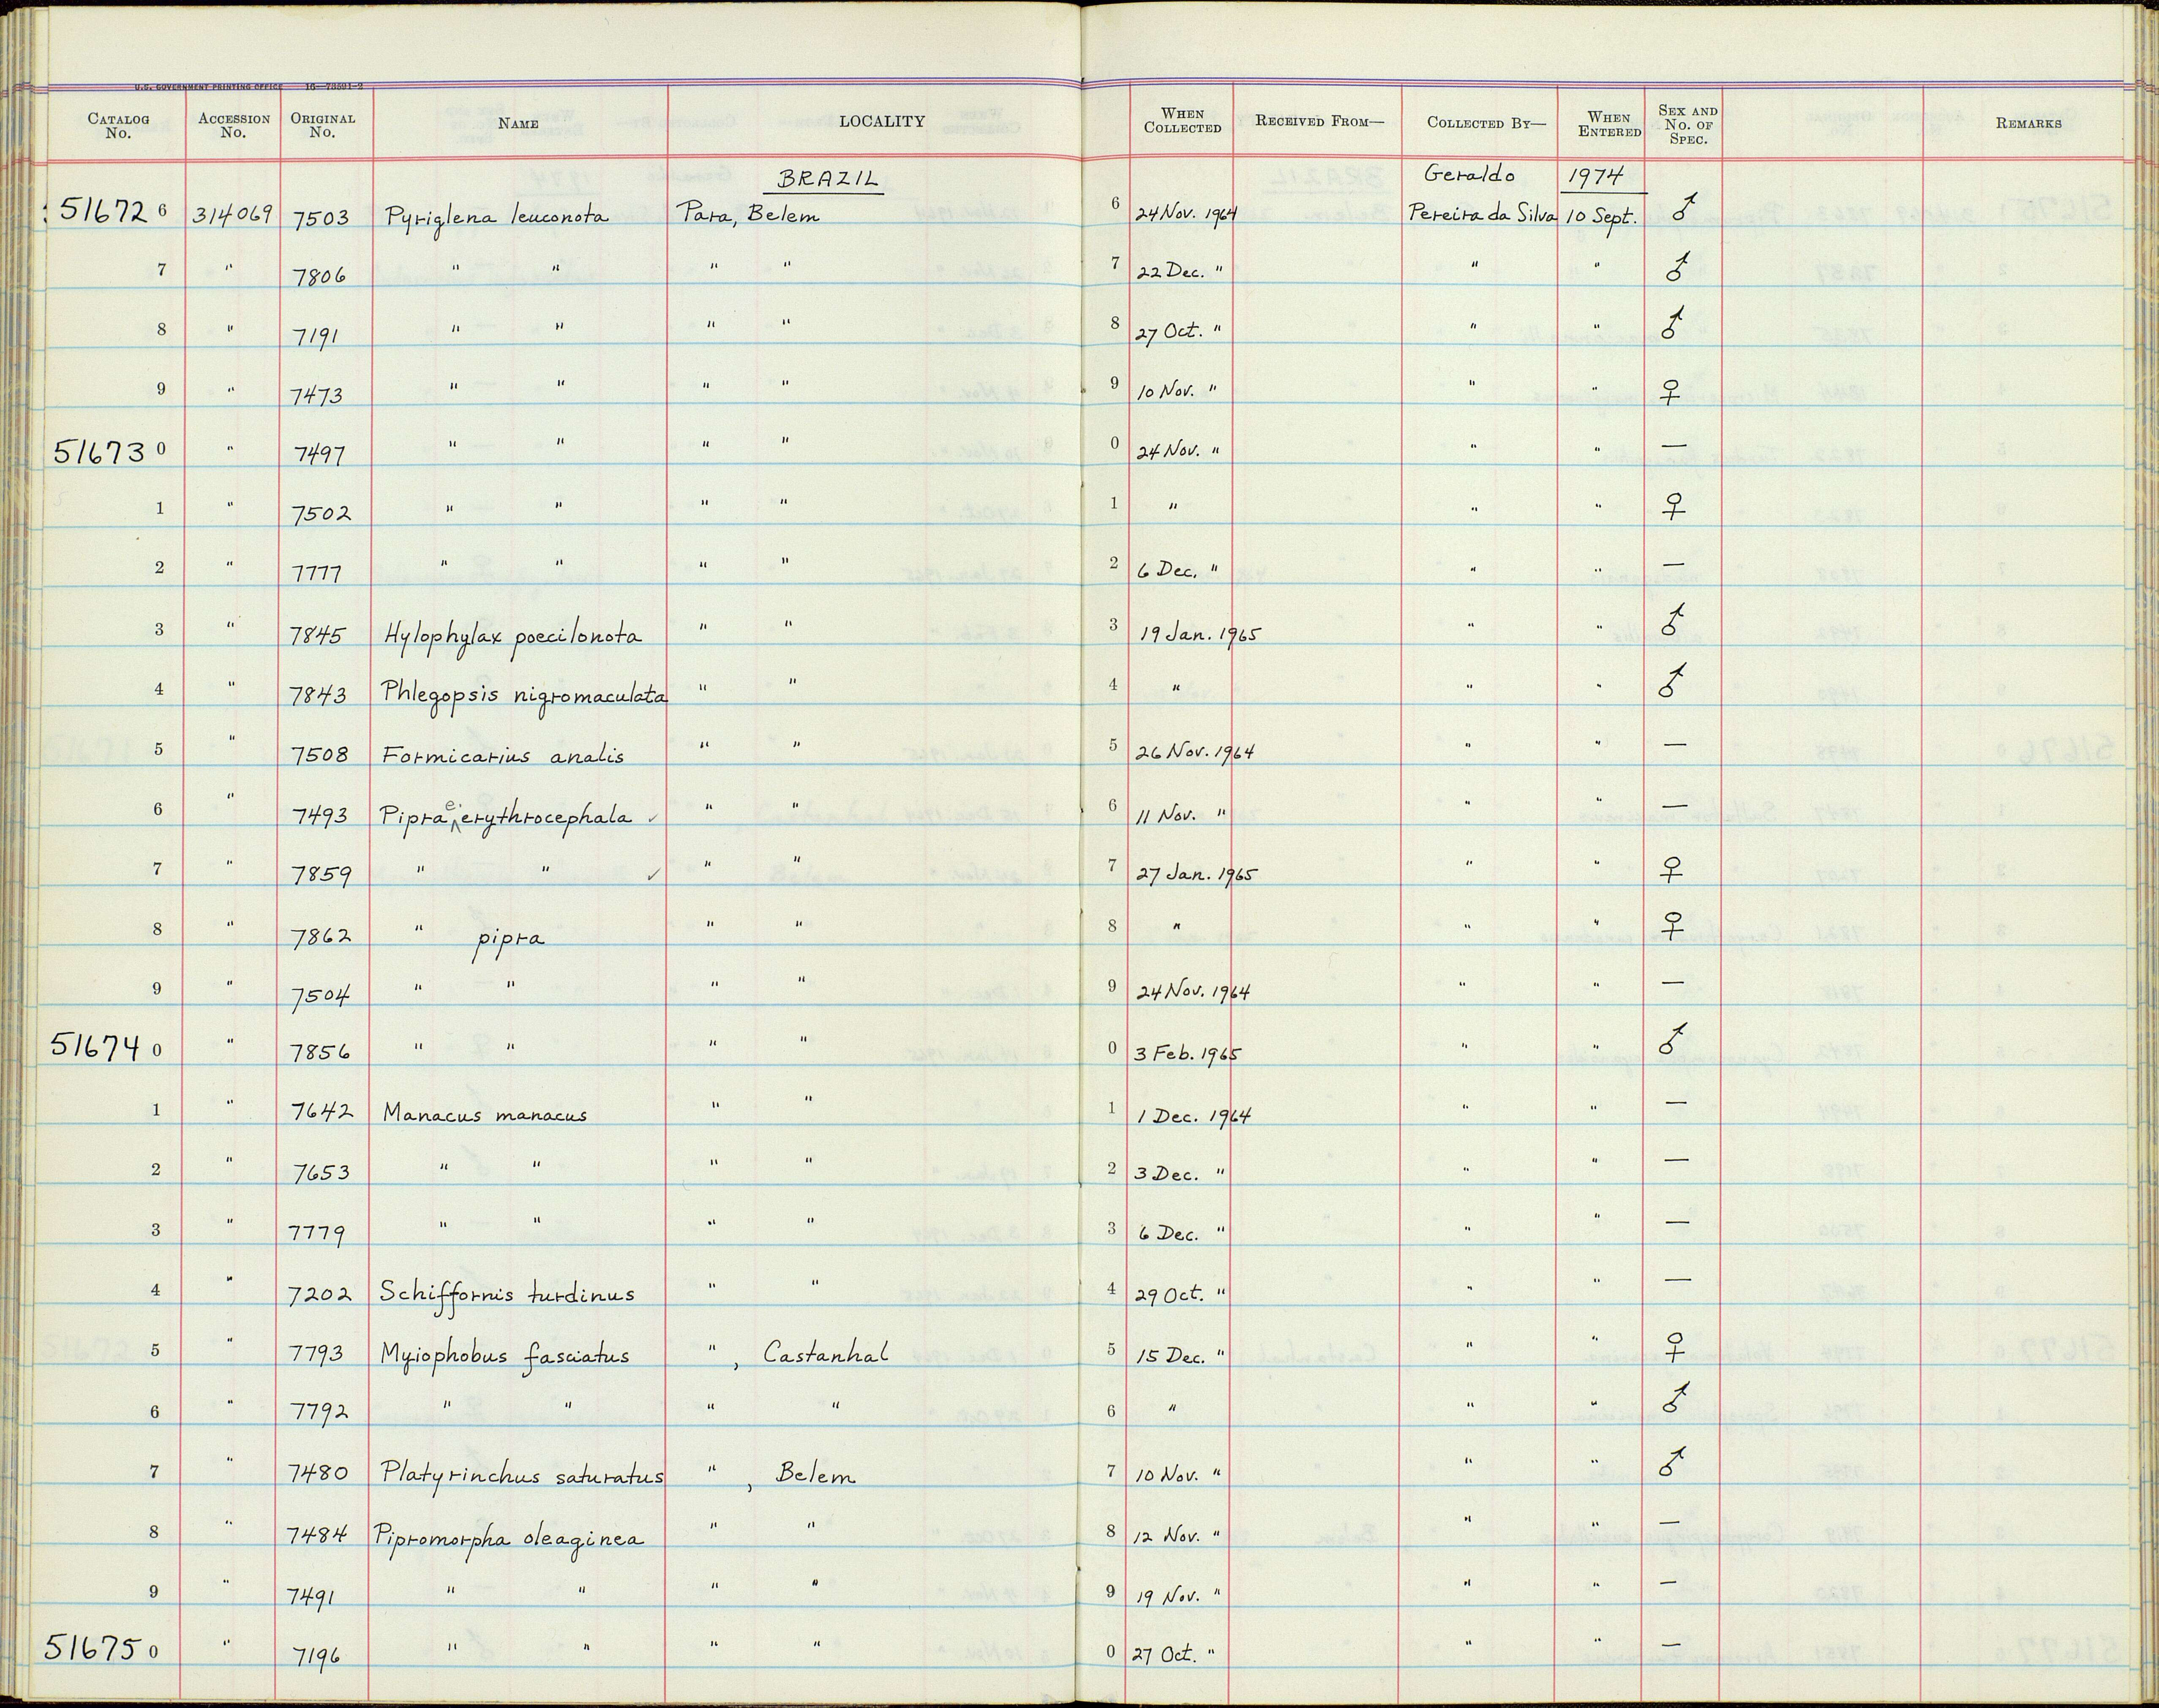 U.S. GOVERNMENT PRINTING OFFICE 16—78591-2
CATALOG No. ACCESSION No. ORIGINAL No. NAME LOCALITY WHEN COLLECTED RECEIVED FROM— COLLECTED BY— WHEN ENTERED SEX AND No. OF SPEC. REMARKS
BRAZIL Geraldo 1974
51672 6 314069 7503 Pyriglena leuconota Para, Belem 6 24 Nov. 1964 Pereira da Silva 10 Sept. ♂
7 " 7806 " " " " 7 22 Dec. " " " ♂
8 " 7191 " " " " 8 27 Oct. " " " ♂
9 " 7473 " " " " 9 10 Nov. " " " ♀
51673 0 " 7497 " " " " 0 24 Nov. " " " —
1 " 7502 " " " " 1 " " " ♀
2 " 7777 " " " " 2 6 Dec. " " " —
3 " 7845 Hylophylax poecilonota " " 3 19 Jan. 1965 " " ♂
4 " 7843 Phlegopsis nigromaculata " " 4 " " " ♂
5 " 7508 Formicarius analis " " 5 26 Nov. 1964 " " —
6 " 7493 Pipra e. erythrocephala ✓ " " 6 11 Nov. " " " —
7 " 7859 " " ✓ " " 7 27 Jan. 1965 " " ♀
8 " 7862 " pipra " " 8 " " " ♀
9 " 7504 " " " " 9 24 Nov. 1964 " " —
51674 0 " 7856 " " " " 0 3 Feb. 1965 " " ♂
1 " 7642 Manacus manacus " " 1 1 Dec. 1964 " " —
2 " 7653 " " " " 2 3 Dec. " " " —
3 " 7779 " " " " 3 6 Dec. " " " —
4 " 7202 Schiffornis turdinus " " 4 29 Oct. " " " —
5 " 7793 Myiophobus fasciatus " , Castanhal 5 15 Dec. " " " ♀
6 " 7792 " " " " 6 " " " ♂
7 " 7480 Platyrinchus saturatus " , Belem 7 10 Nov. " " " ♂
8 " 7484 Pipromorpha oleaginea " " 8 12 Nov. " " " —
9 " 7491 " " " " 9 19 Nov. " " " —
51675 0 " 7196 " " " " 0 27 Oct. " " " —